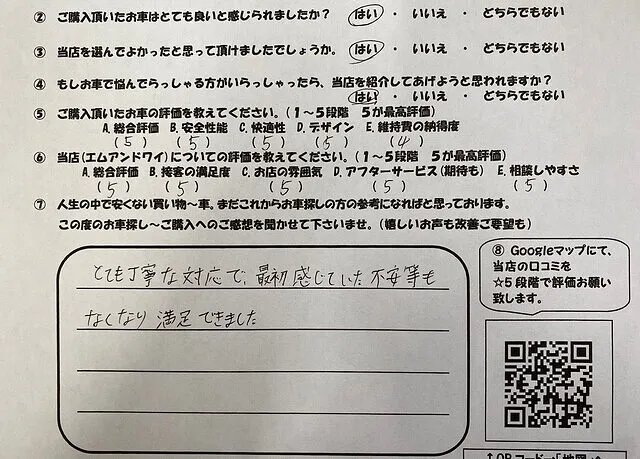 ② ご購入頂いたお車はとても良いと感じられましたか？ はい ・ いいえ ・ どちらでもない
③ 当店を選んでよかったと思って頂けましたでしょうか。 はい ・ いいえ ・ どちらでもない
④ もしお車で悩んでらっしゃる方がいらっしゃったら、当店を紹介してあげようと思われますか？
はい ・ いいえ ・ どちらでもない
⑤ ご購入頂いたお車の評価を教えてください。(１～５段階 ５が最高評価)
A.総合評価 B.安全性能 C.快適性 D.デザイン E.維持費の納得度
(5) (5) (5) (5) (4)
⑥ 当店(エムアンドワイ)についての評価を教えてください。(１～５段階 ５が最高評価)
A.総合評価 B.接客の満足度 C.お店の雰囲気 D.アフターサービス(期待も) E.相談しやすさ
(5) (5) (5) (5) (5)
⑦ 人生の中で安くない買い物～車。まだこれからお車探しの方の参考になればと思っております。
この度のお車探し～ご購入へのご感想を聞かせて下さいませ。(嬉しいお声も改善ご要望も)
とても丁寧な対応で、最初感じていた不安等も
なくなり満足できました
⑧ Googleマップにて、
当店の口コミを
☆５段階で評価お願い
致します。